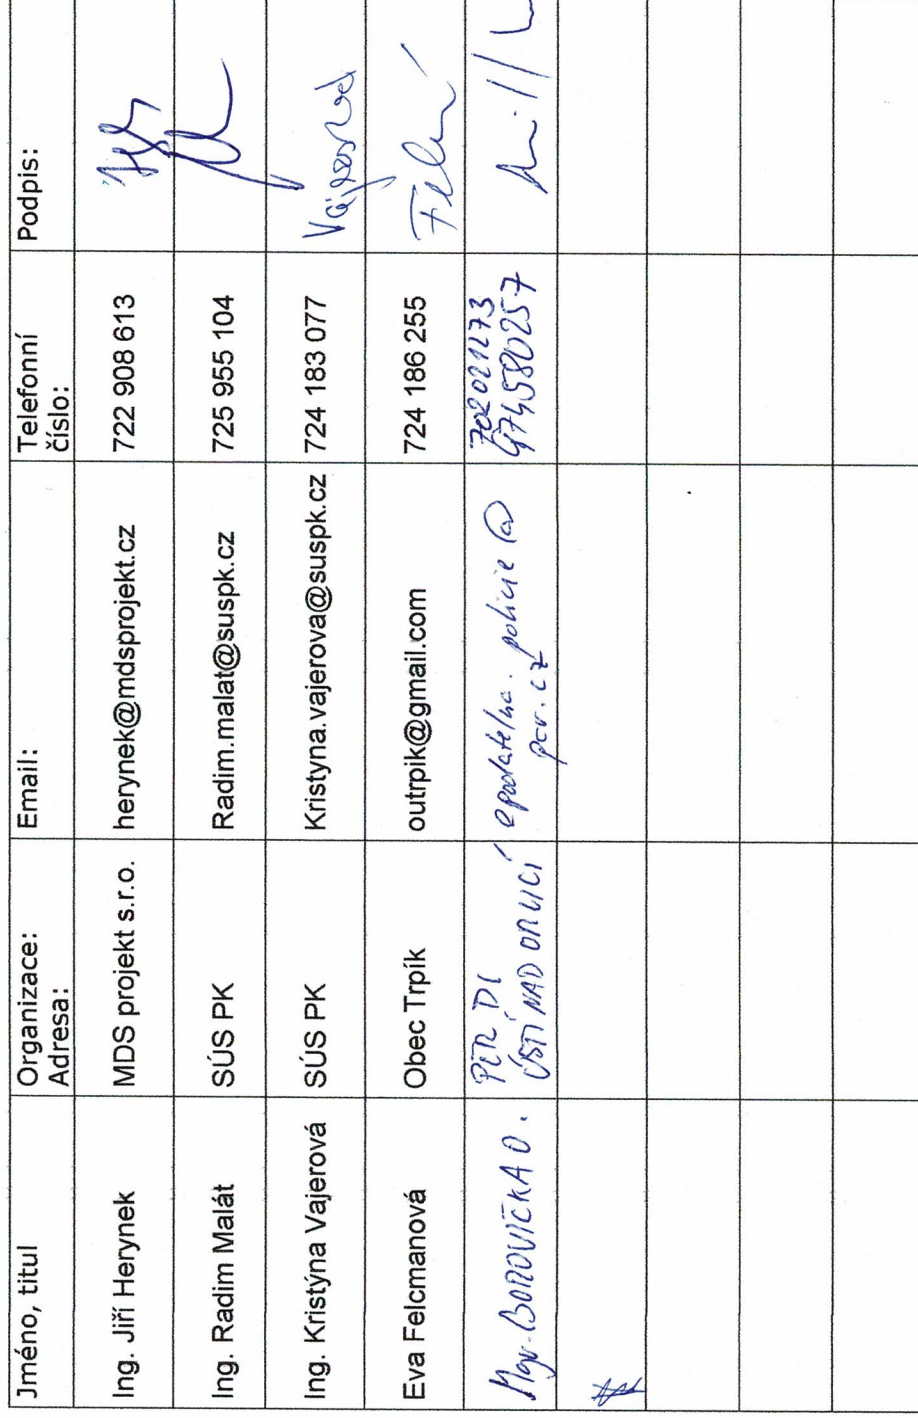 Jméno, titul Organizace: Email: Telefonní Podpis:
Adresa: číslo:
Ing. Jiří Herynek MDS projekt s.r.o. herynek@mdsprojekt.cz 722 908 613
Ing. Radim Malát SÚS PK Radim.malat@suspk.cz 725 955 104
Ing. Kristýna Vajerová SÚS PK Kristyna.vajerova@suspk.cz 724 183 077 Vajerová
Eva Felcmanová Obec Trpík outrpik@gmail.com 724 186 255
Mgr. BOROVIČKA O. PČR DI policie@
ÚSTÍ NAD ORLICÍ pcr.cz 974580257